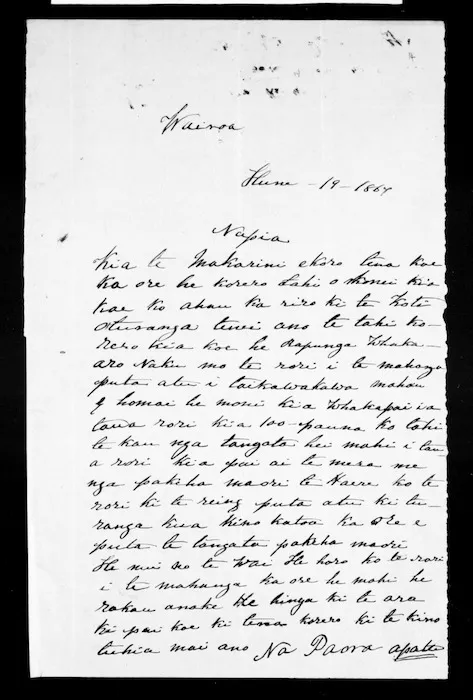 Wairoa
Hune - 19 - 1867
Napia
Kia te Makarini ekoro tena koe
ka ore he korero Lahi o konei kia
koe ko ahau ka riro ki te Koti
oturanga tenei ano te tahi ko-
rero kia koe he Rapunga Whaka-
aro Naku mo te rori i te mahanga
puta atu i Caikawakawa mahau
e homai he moni kia Whakapai ia
taua rori kia 100-pauna ko tahi
te kau nga tangata hei mahi i tau
a rori kia pai ai te mera me
nga pakeha maori te Haere ko te
rori ki te reinga puta atu ki tu-
ranga kua kino katoa ka Ore e
puta te tangata pakeha maori
He nui no te Wai He horo ko te rori
i te mahanga ka ore he mahi he
rakau anake He hinga ki te ara
ki pai koe ki tena korero ki te kino
tuhia mai ano Na Paora apatu